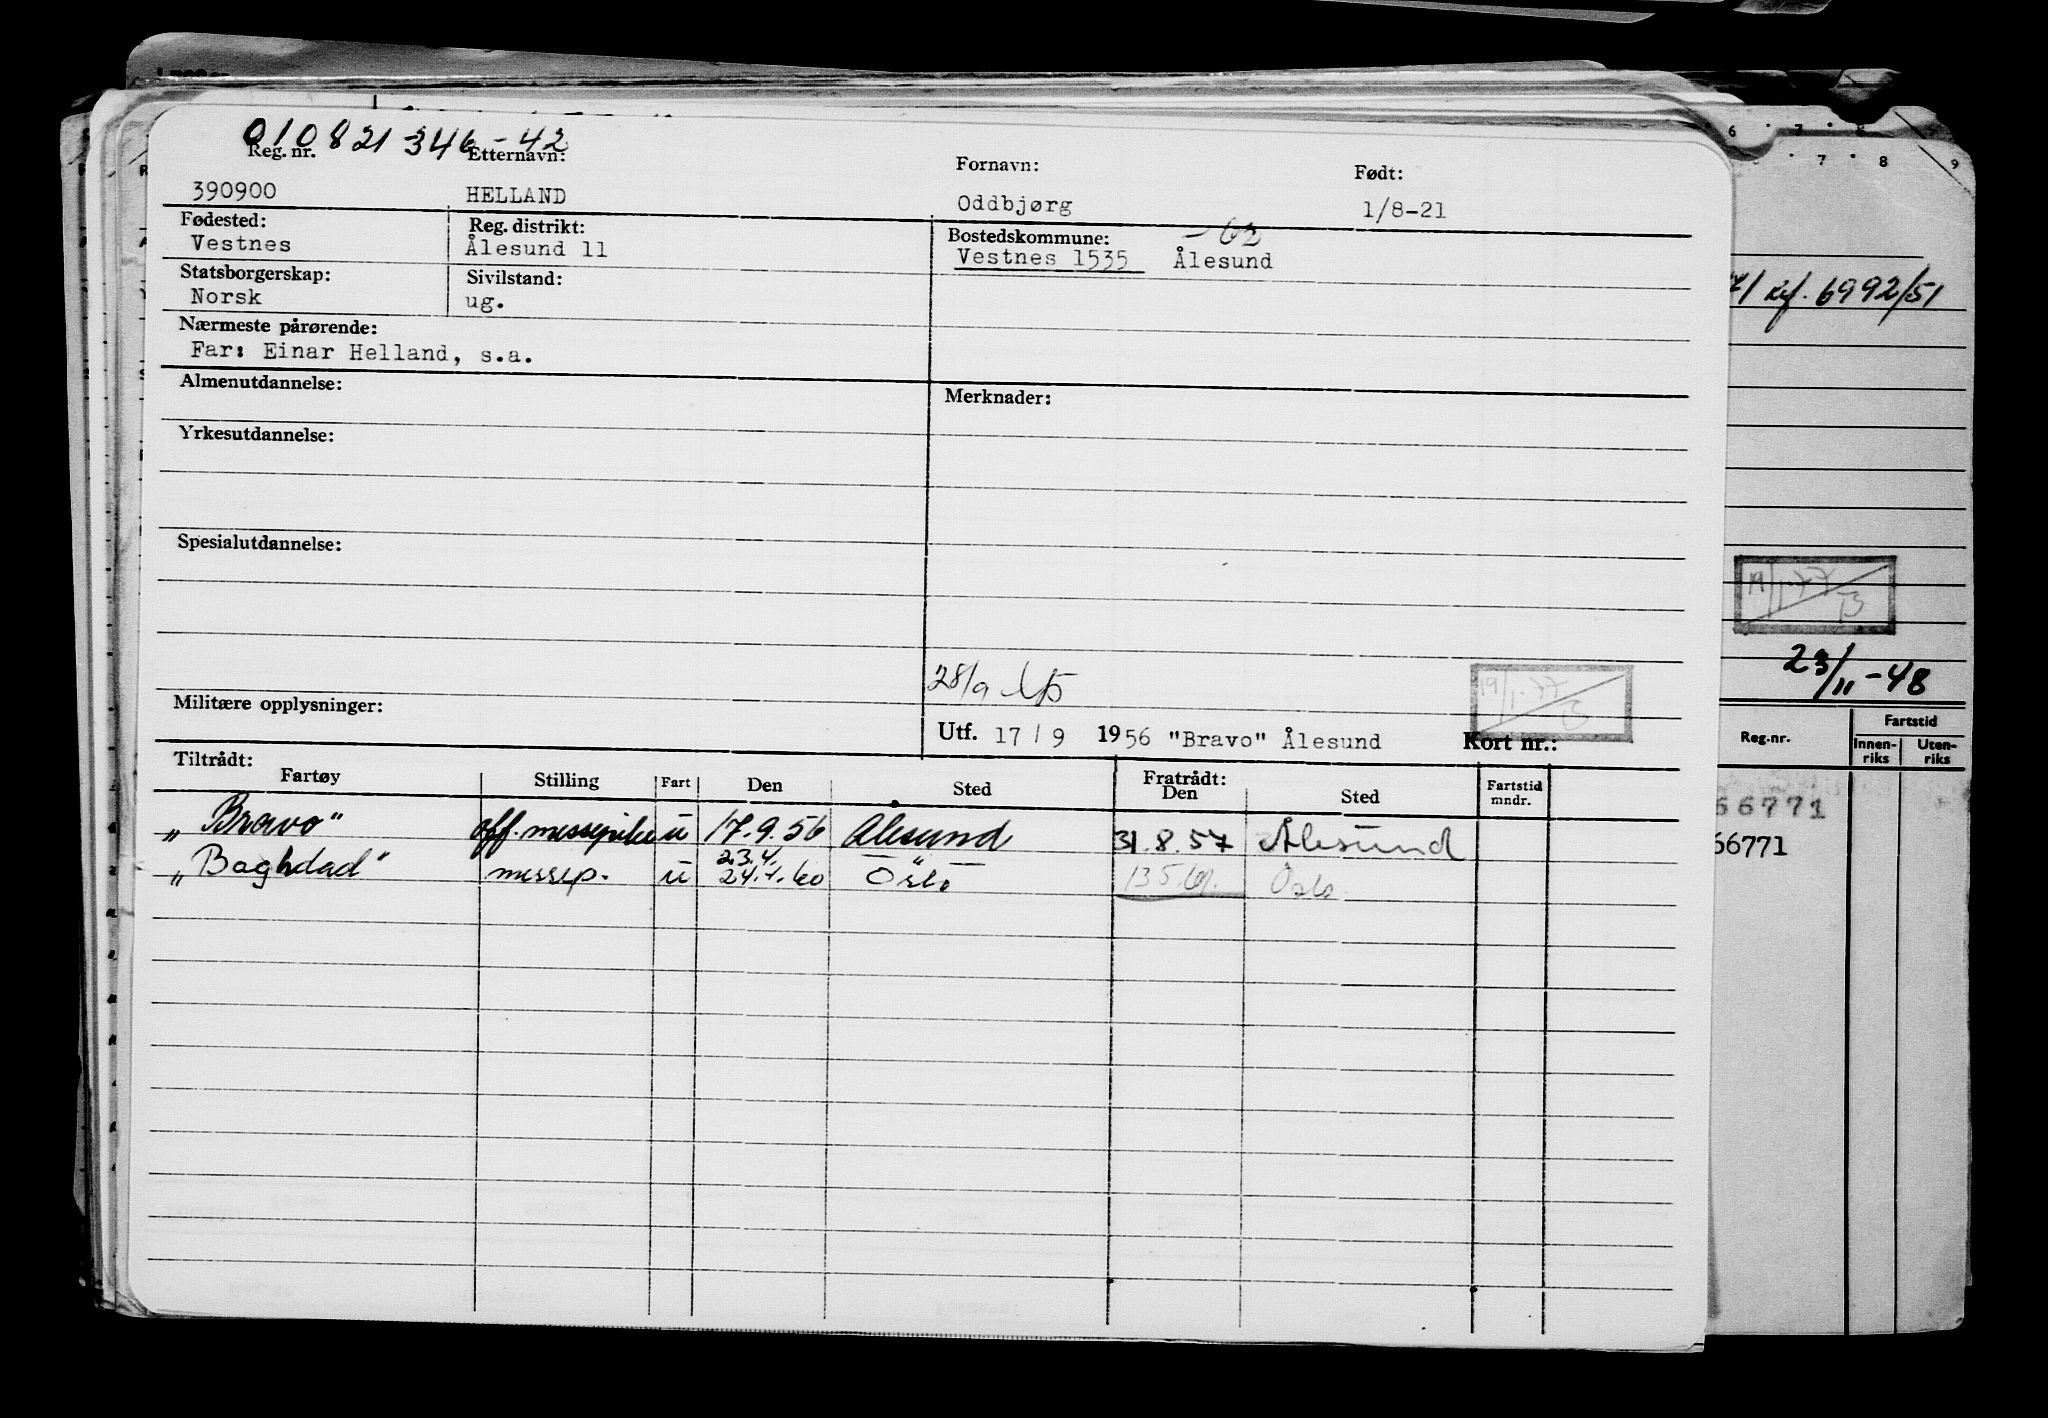 010821 346-42
Reg. nr. Etternavn: Fornavn: Født:
390900 HELLAND Oddbjørg 1/8-21
Fødested: Reg. distrikt: Bostedskommune: -62
Vestnes Ålesund 11 Vestnes 1535 Ålesund
Statsborgerskap: Sivilstand:
Norsk ug.
Nærmeste pårørende:
Far: Einar Helland, s.a.
Almenutdannelse: Merknader:
Yrkesutdannelse:
Spesialutdannelse:
28/9
19/1-77
Militære opplysninger:
Utf. 17/9 1956 "Bravo" Ålesund Kort nr.:
Tiltrådt: Fratrådt:
Fartøy Stilling Fart Den Sted Den Sted Fartstid mndr.
"Bravo" off. messepike u 17.9.56 Ålesund 31.8.57 Ålesund
23.4.
"Baghdad" messep. u 24.4.60 Oslo 13 5. Oslo
6 7 8
7 8 9
ref. 6992/51
19/1-77
23/11-48
Reg.nr. Fartstid
Innen-riks Uten-riks
66771
66771